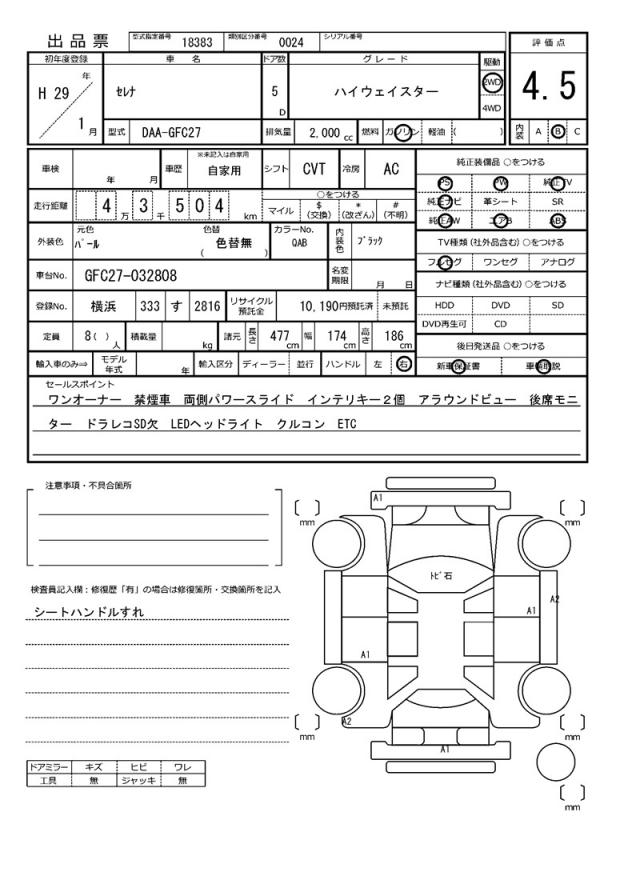 出品票 型式指定番号 18383 類別区分番号 0024 シリアル番号
評価点
4.5
内装 A B C
初年度登録 車名 ドア数 グレード 駆動
H 29 年 1 月
セレナ 5 D ハイウェイスター 2WD
4WD
型式 DAA-GFC27 排気量 2,000 cc 燃料 ガソリン 軽油 ( )
車検 年 月 車歴 ※未記入は自家用 自家用 シフト CVT 冷房 AC
走行距離 4 万 3 千 5 0 4 km
○をつける
マイル $ (交換) * (改ざん) # (不明)
外装色 元色 パール 色替 ( 色替無 ) カラーNo. QAB 内装色 ブラック
車台No. GFC27-032808 名変期限 月 日
登録No. 横浜 333 す 2816 リサイクル預託金 10,190円預託済 未預託
定員 8( ) 人 積載量 kg 諸元 長さ 477 cm 幅 174 cm 高さ 186 cm
輸入車のみ⇒ モデル年式 年 輸入区分 ディーラー 並行 ハンドル 左 右
純正装備品 ○をつける
PS PW 純正TV
純正ナビ 革シート SR
純正AW エアB ABS
TV種類 (社外品含む) ○をつける
フルセグ ワンセグ アナログ
ナビ種類 (社外品含む) ○をつける
HDD DVD SD
DVD再生可 CD
後日発送品 ○をつける
新車保証書 車輌取説
セールスポイント
ワンオーナー 禁煙車 両側パワースライド インテリキー2個 アラウンドビュー 後席モニ
ター ドラレコSD欠 LEDヘッドライト クルコン ETC
注意事項・不具合箇所
検査員記入欄:修復歴「有」の場合は修復箇所・交換箇所を記入
シートハンドルすれ
ドアミラー キズ ヒビ ワレ
工具 無 ジャッキ 無
A1
mm
mm
トビ石
A1
A2
A1
A2
mm
mm
A1
mm